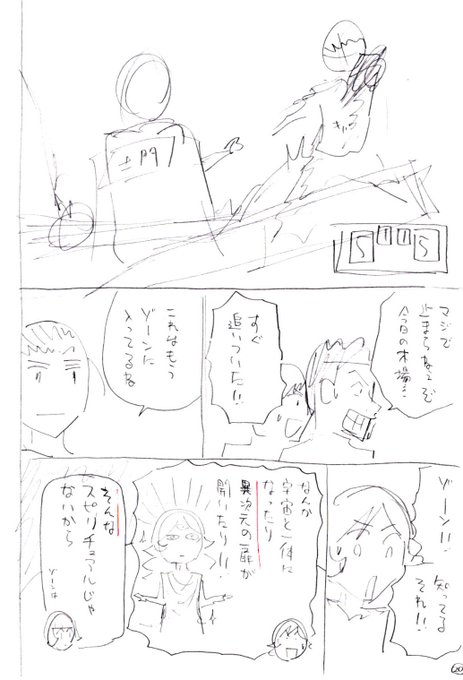 土門
5 11 5
マジで
止まらねえぞ
今日の木場さん
すぐ
追いついた!!
これはもう
ゾーンに
入ってるね
ゾーン!!
知ってる
それ!!
なんか
宇宙と一体に
なったり
異次元の扉が
開いたり!!
そんな
スピリチュアルじゃ
ないから
ゾーンは
20